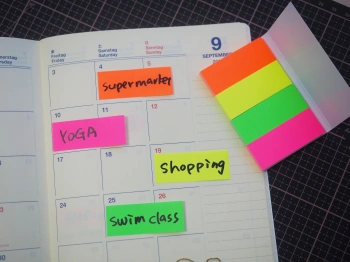 Freitag Samstag Sonntag
Friday Saturday Sunday
9
SEPTEMBER
3 4 5
supermarket
10 11 12
YOGA
17 18 19
shopping
24 25 26
swim class